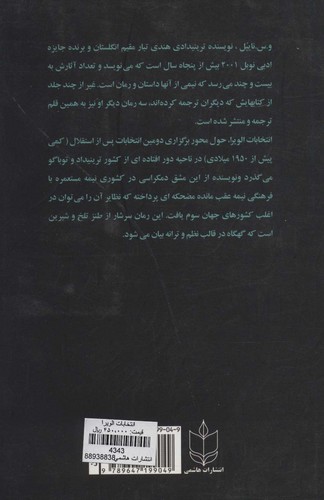 و.س.نایپل ، نویسنده ترینیدادی هندی تبار مقیم انگلستان و برنده جایزه
ادبی نوبل ۲۰۰۱ بیش از پنجاه سال است که می‌نویسد و تعداد آثارش به
بیست و چند می‌رسد که نیمی از آنها داستان و رمان است. غیر از چند جلد
از کتابهایش که دیگران ترجمه کرده‌اند، سه رمان دیگر او نیز به همین قلم
ترجمه و منتشر شده است.
انتخابات الویرا، حول محور برگزاری دومین انتخابات پس از استقلال (کمی
پیش از ۱۹۵۰ میلادی) در ناحیه دور افتاده ای از کشور ترینیداد و توباگو
می‌گذرد ونویسنده از این مشق دمکراسی در کشوری نیمه مستعمره با
فرهنگی نیمه عقب مانده مضحکه ای پرداخته که نظایر آن را می‌توان در
اغلب کشورهای جهان سوم یافت. این رمان سرشار از طنز تلخ و شیرین
است که گهگاه در قالب نظم و ترانه بیان می شود.
99-04-9
انتخابات الویرا
قیمت: ۲۵۰,۰۰۰ ریال
4343
انتشارات هاشمی 88938838
9 789647 199049
انتشارات هاشمی